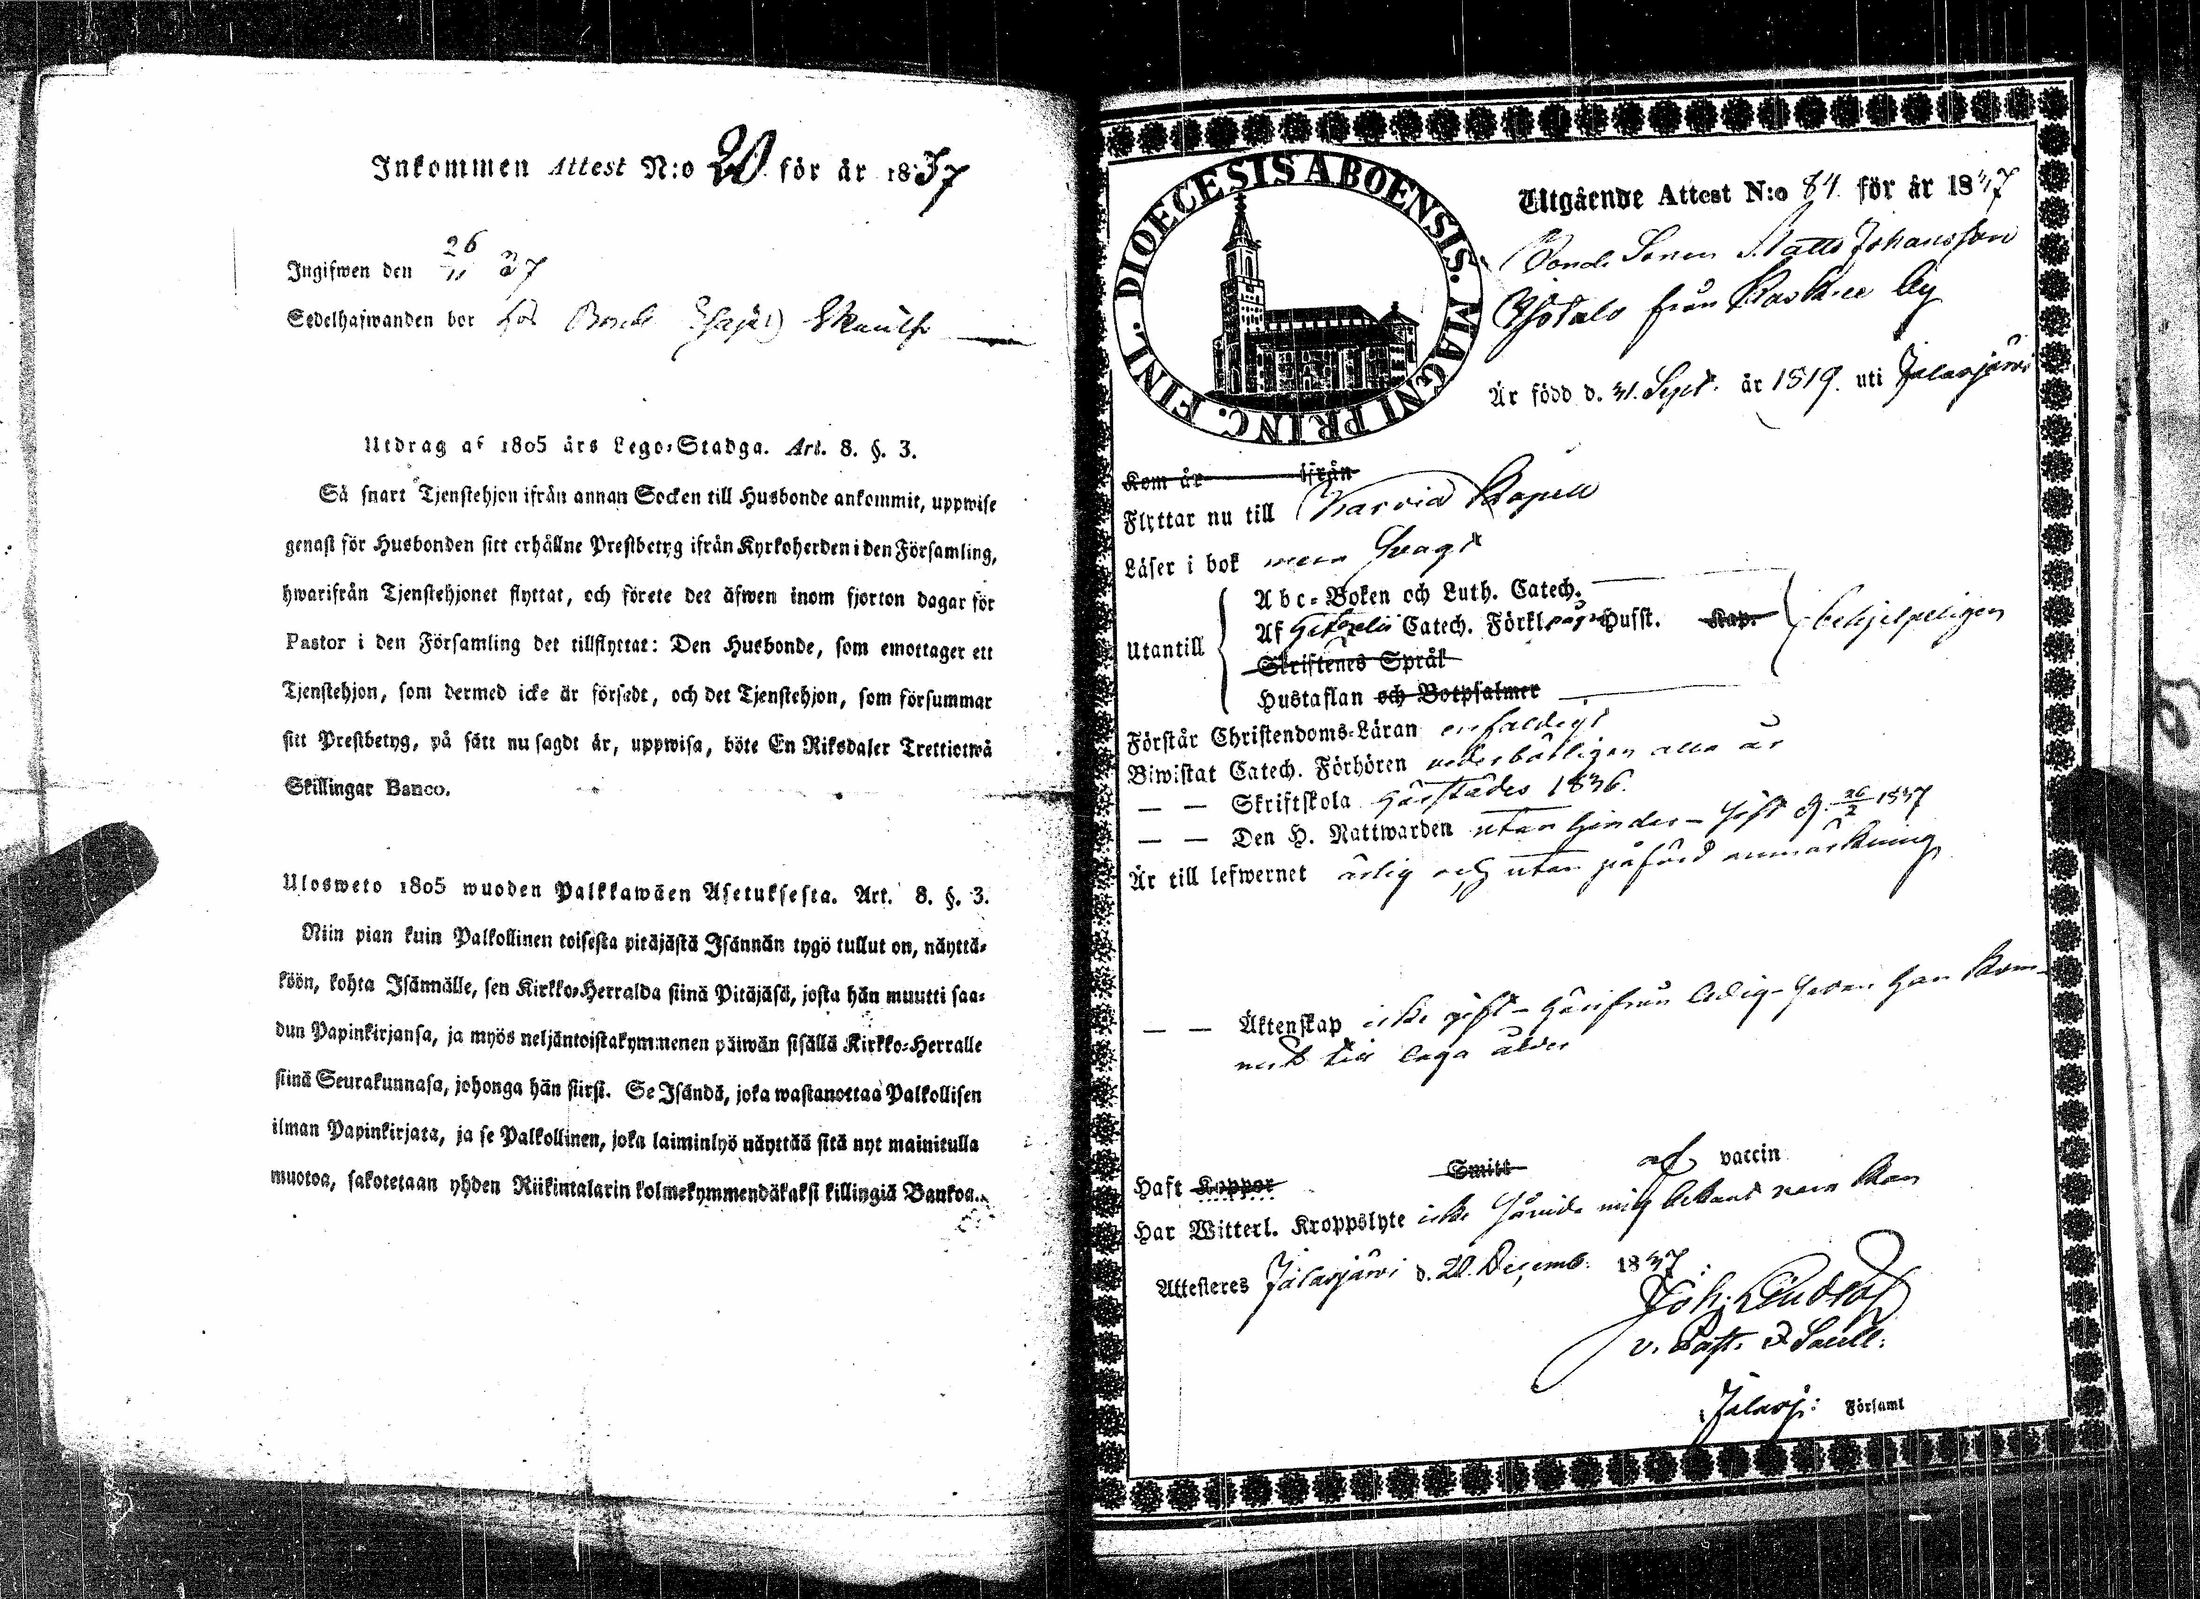 Inkommen Attest N:o 20 för år 1837
Ingifwen den 26/11 37
Sedelhafwanden bor hos Bonde
Utdrag af 1805 års Lego-Stadga. Art. 8. §. 3.
Så snart Tjenstehjon ifrån annan Socken till Husbonde ankommit, uppwise
genast för Husbonden sitt erhållne Prestbetyg ifrån Kyrkoherden i den Församling,
hwarifrån Tjenstehjonet flyttat, och förete det äfwen inom fjorton dagar för
Pastor i den Församling det tillflyttat: Den Husbonde, som emottager ett
Tjenstehjon, som dermed icke är försedt, och det Tjenstehjon, som försummar
sitt Prestbetyg, på sätt nu sagdt är, uppwisa, böte En Riksdaler Trettiotwå
Skillingar Banco.
Ulosweto 1805 wuoden Palkkawäen Asetuksesta. Art. 8. §. 3.
Niin pian kuin Palkollinen toisesta pitäjästä Isännän tygö tullut on, näyttä-
köön, kohta Isännälle, sen Kirkko-Herralda siinä Pitäjäsä, josta hän muutti saa-
dun Papinkirjansa, ja myös neljäntoistakymmenen päiwän sisällä Kirkko-Herralle
siinä Seurakunnasa, johonga hän siirsi. Se Isändä, joka wastanottaa Palkollisen
ilman Papinkirjata, ja se Palkollinen, joka laiminlyö näyttää sitä nyt mainitulla
muotoa, sakotetaan yhden Riikintalarin kolmekymmendäkaksi killingiä Bankoa.
DIOECESIS ABOENSIS. MAGNI PRINC. FINL.
Utgående Attest N:o 84 för år 1837
Bonde Sonen Matts Johansson
från Koskue By
Är född d. 31. Sept. år 1819. uti Jalasjärvi
Kom år ifrån
Flyttar nu till Karvia Kapell
Läser i bok svagt
Utantill
Abc-Boken och Luth. Catech.
Af Catech. Förkl. Husst. Kap.
behjelpeligen
Skriftenes Språk
Hustaflan och Botpsalmer
Förstår Christendoms-Läran enfaldigt
Biwistat Catech. Förhören vederbörligen alla år
— — Skriftskola 1836.
— — Den H. Nattwarden utan hinder – sist d. 26/2 1837
Är till lefwernet ärlig och utan påförd anmärkning
— — Äktenskap icke gift – härifrån ledig – sedan han kom-
mit till laga ålder
Haft Koppor Smitt af vaccin
Har Witterl. Kroppslyte icke mig bekant
Attesteres Jalasjärvi d. 20. Decemb. 1837.
Joh:
v. Past.
i Jalasj: Församl